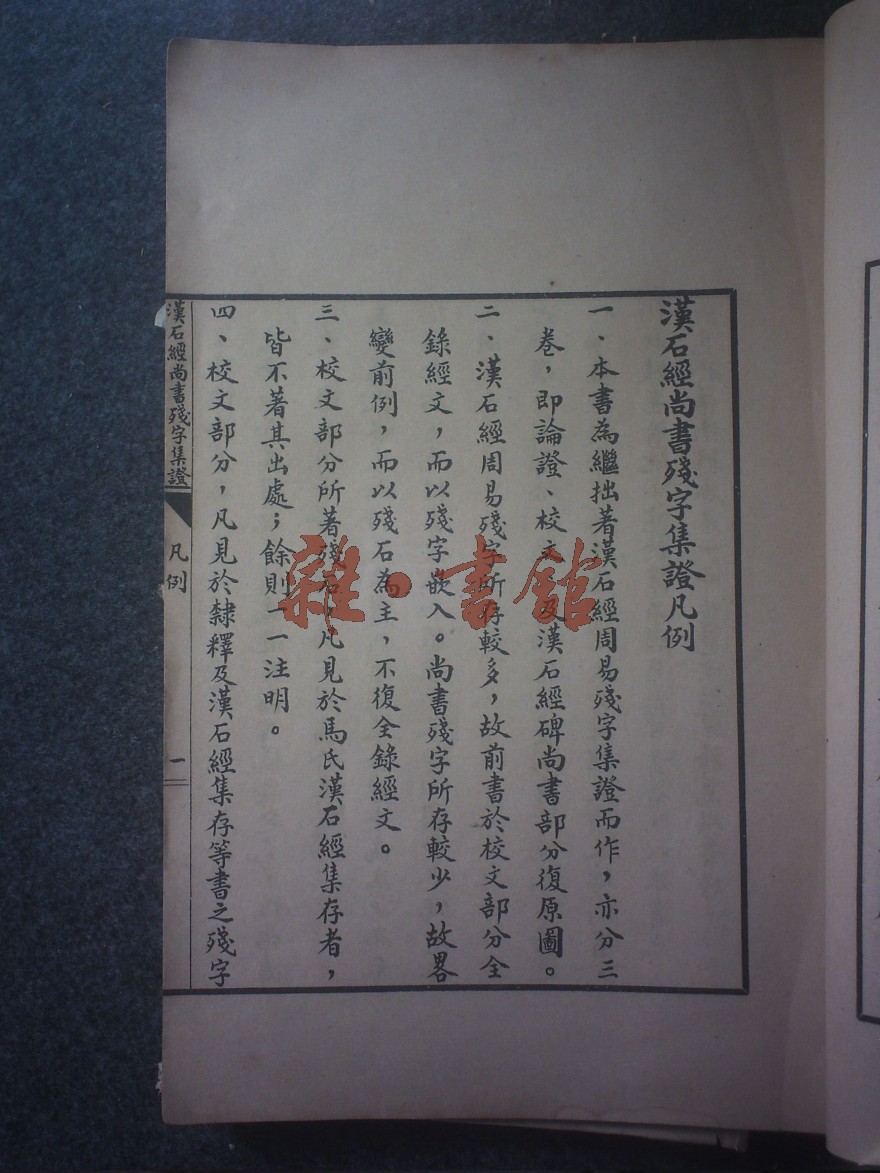 漢石經尚書殘字集證凡例
一、本書為繼拙著漢石經周易殘字集證而作，亦分三
卷，即論證、校文及漢石經碑尚書部分復原圖。
二、漢石經周易殘字所存較多，故前書於校文部分全
錄經文，而以殘字嵌入。尚書殘字所存較少，故畧
變前例，而以殘石為主，不復全錄經文。
三、校文部分所著殘石，凡見於馬氏漢石經集存者，
皆不著其出處；餘則一一注明。
四、校文部分，凡見於隸釋及漢石經集存等書之殘字
漢石經尚書殘字集證
凡例
一
雜·書館